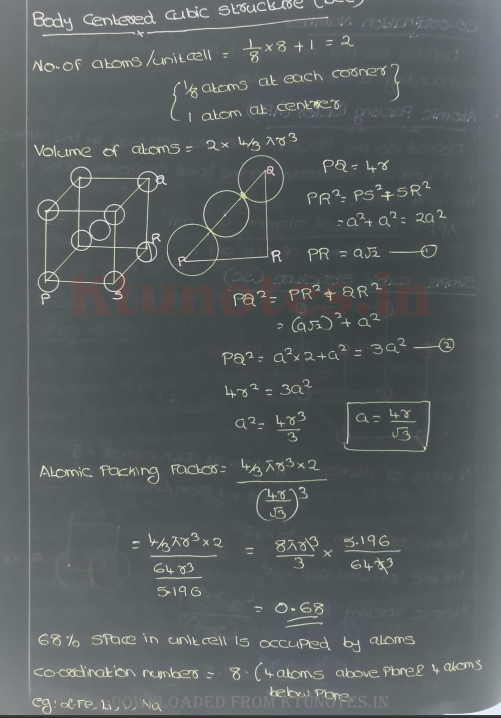 Body Centered Cubic Structure
No. of atoms/unitcell = 1/8 × 8 + 1 = 2
{ 1/8 atoms at each corner }
{ 1 atom at center }
Volume of atoms = 2 × 4/3 πr³
PQ = 4r
PR² = PS² + SR²
= a² + a² = 2a²
PR = a√2 —①
Q
R
P
S
Q
P
R
PQ² = PR² + QR²
= (a√2)² + a²
PQ² = a² × 2 + a² = 3a² —②
4r² = 3a²
a² = 4r³/3
a = 4r/√3
Atomic Packing Factor = 4/3 πr³ × 2 / (4r/√3)³
= 4/3 πr³ × 2 / (64r³/5.196) = 8πr³/3 × 5.196/64r³
= 0.68
68% space in unitcell is occupied by atoms
co-ordination number = 8 (4 atoms above Plane & 4 atoms
below Plane
eg: α-Fe, Li, Na
Ktunotes.in
DOWNLOADED FROM KTUNOTES.IN